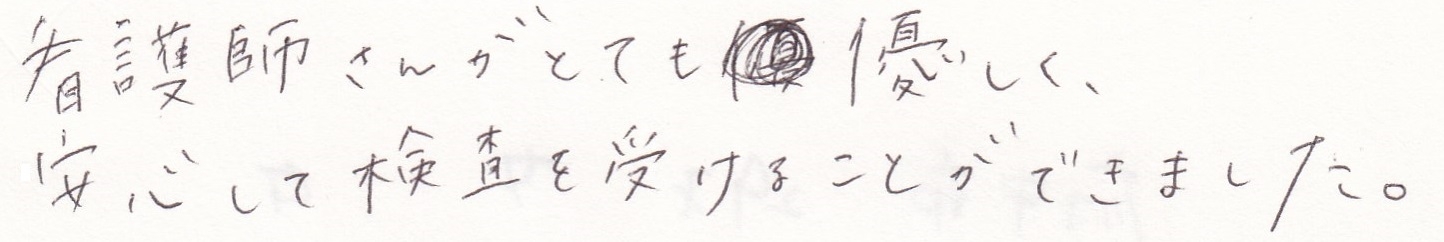 看護師さんがとても優しく、
安心して検査を受けることができました。